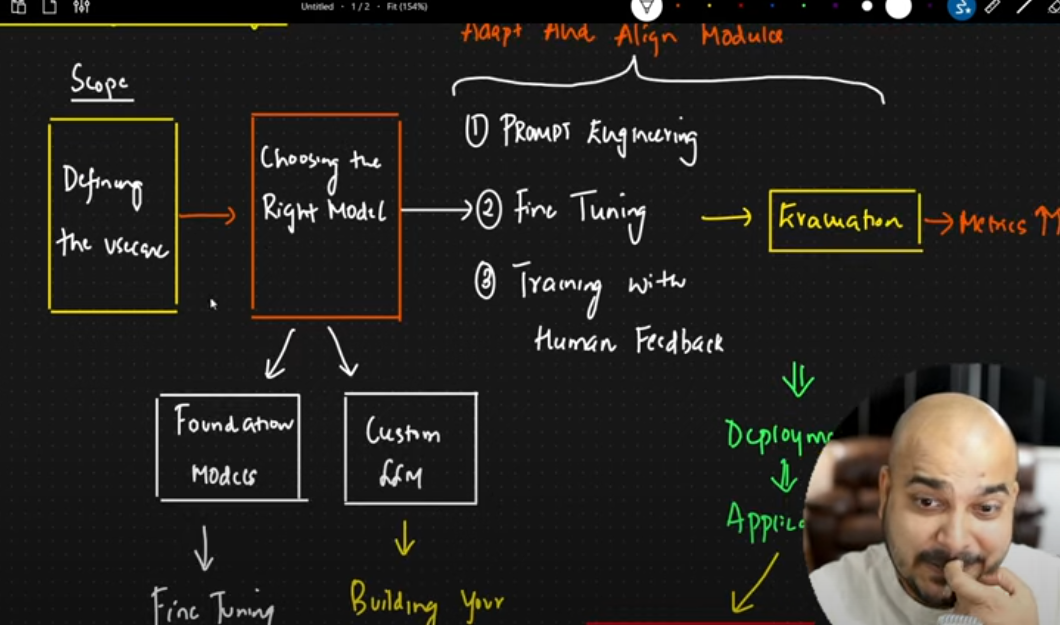 Untitled · 1 / 2 · Fit (154%)
Adapt And Align Models
Scope
Defining
the usecase
Choosing the
Right Model
① Prompt Engineering
② Fine Tuning
③ Training with
Human Feedback
Evaluation
Metrics
Foundation
Models
Custom
LLM
Deployme
Applic
Fine Tuning
Building Your